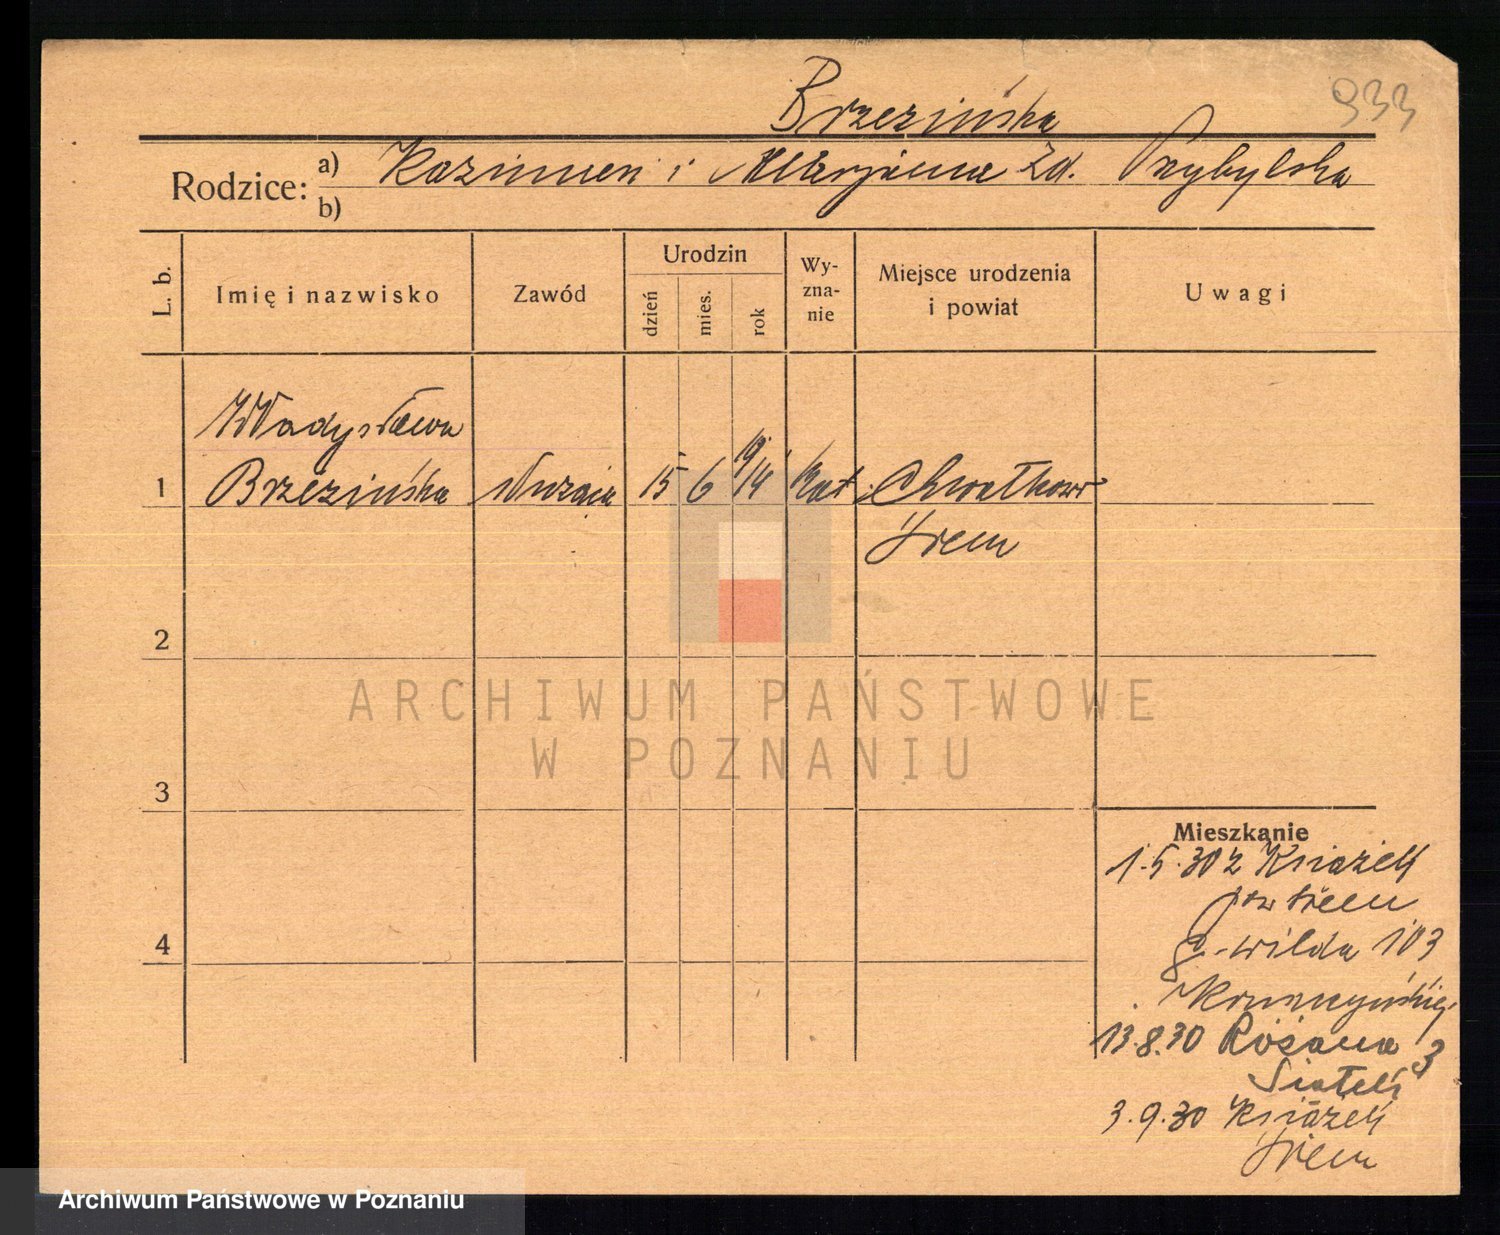 933
Brzezińska
Rodzice: a) Kazimierz i Marjanna zd. Przybylska
b)
L. b.
Imię i nazwisko
Zawód
Urodzin
dzień
mies.
rok
Wy-
zna-
nie
Miejsce urodzenia
i powiat
Uwagi
Władysława
1 Brzezińska służąca 15 6 19/14 kat Chwałkowo
Śrem
2
3
4
ARCHIWUM PAŃSTWOWE
W POZNANIU
Mieszkanie
1.5.30 z Książek
pow Śrem
g-wilda 103
13.8.30 Różana 3
3.9.30 Książek
Śrem
Archiwum Państwowe w Poznaniu